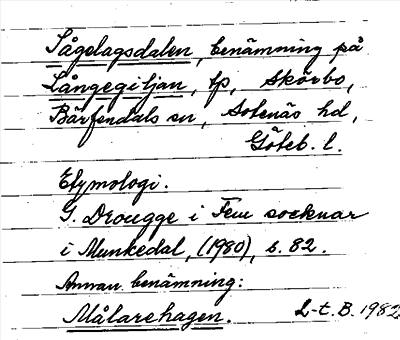 Sågelagsdalen, benämning på
Långegiljan, tp, Skörbo,
Bärfendals sn, Sotenäs hd,
Göteb. l.
Etymologi.
G. Drougge i Fem socknar
i Munkedal, (1980), s. 82.
Annan benämning:
Målarehagen.
L-t. B. 1982